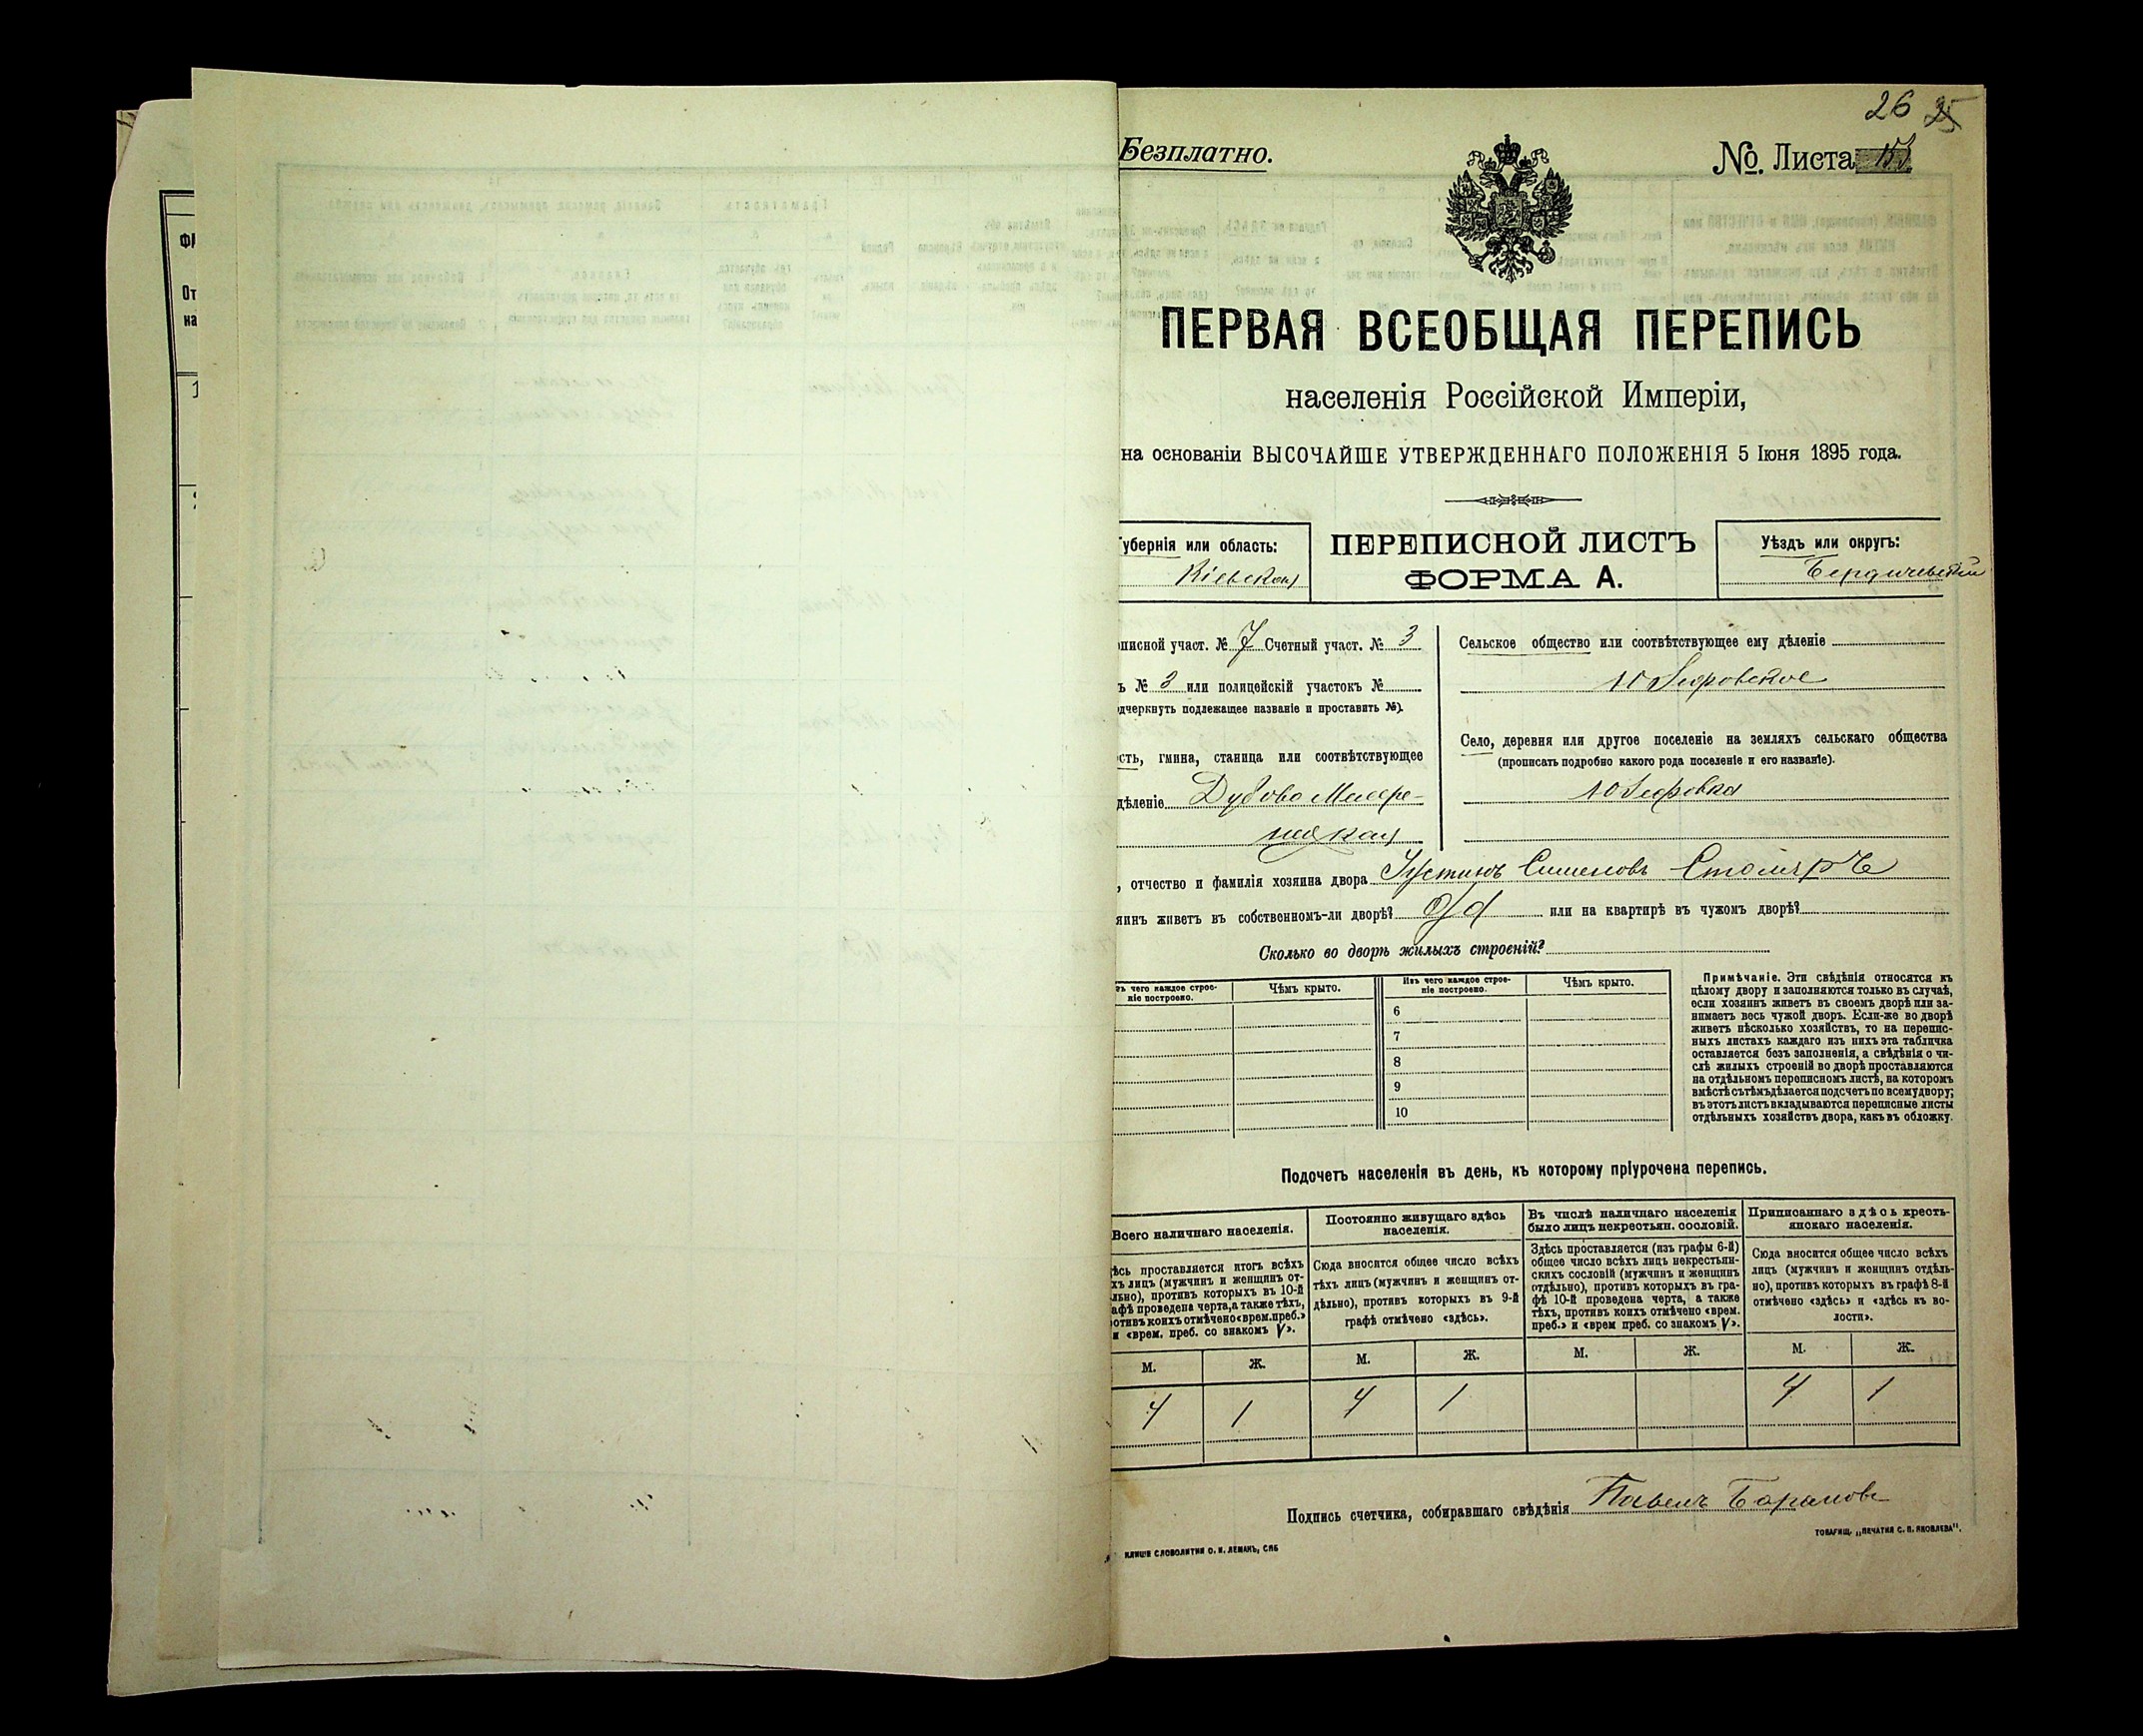 26 25
Безплатно.
№. Листа 15
ПЕРВАЯ ВСЕОБЩАЯ ПЕРЕПИСЬ
населенія Россійской Имперіи,
на основаніи ВЫСОЧАЙШЕ УТВЕРЖДЕННАГО ПОЛОЖЕНІЯ 5 Іюня 1895 года.
Губернія или область:
Кіевская
ПЕРЕПИСНОЙ ЛИСТЪ
ФОРМА А.
Уѣздъ или округъ:
Бердичевскій
описной участ. № 7 Счетный участ. № 3
ъ № 3 или полицейскій участокъ №
одчеркнуть подлежащее названіе и проставить №).
сть, гмина, станица или соотвѣтствующее
дѣленіе Дубово Махаре-
нецкая
Сельское общество или соотвѣтствующее ему дѣленіе
Юзефовское
Село, деревня или другое поселеніе на земляхъ сельскаго общества
(прописать подробно какого рода поселеніе и его названіе).
Юзефовка
, отчество и фамилія хозяина двора Іустинъ Симеоновъ Столяръ
яинъ живетъ въ собственномъ-ли дворѣ? Да или на квартирѣ въ чужомъ дворѣ?
Сколько во дворѣ жилыхъ строеній?
ъ чего каждое строе-
ніе построено.
Чѣмъ крыто.
Изъ чего каждое строе-
ніе построено.
Чѣмъ крыто.
6
7
8
9
10
Примѣчаніе. Эти свѣдѣнія относятся къ
цѣлому двору и заполняются только въ случаѣ,
если хозяинъ живетъ въ своемъ дворѣ или за-
нимаетъ весь чужой дворъ. Если-же во дворѣ
живетъ нѣсколько хозяйствъ, то на перепис-
ныхъ листахъ каждаго изъ нихъ эта табличка
оставляется безъ заполненія, а свѣдѣнія о чи-
слѣ жилыхъ строеній во дворѣ проставляются
на отдѣльномъ переписномъ листѣ, на которомъ
вмѣстѣ съ тѣмъ дѣлается подсчетъ по всему двору;
въ этотъ листъ вкладываются переписные листы
отдѣльныхъ хозяйствъ двора, какъ въ обложку.
Подочетъ населенія въ день, къ которому пріурочена перепись.
Всего наличнаго населенія.
ѣсь проставляется итогъ всѣхъ
хъ лицъ (мужчинъ и женщинъ от-
льно), противъ которыхъ въ 10-й
афѣ проведена черта, а также тѣхъ,
отивъ коихъ отмѣчено «врем. преб.»
и «врем. преб. со знакомъ V».
Постоянно живущаго здѣсь
населенія.
Сюда вносится общее число всѣхъ
тѣхъ лицъ (мужчинъ и женщинъ от-
дѣльно), противъ которыхъ въ 9-й
графѣ отмѣчено «здѣсь».
Въ числѣ наличнаго населенія
было лицъ некрестьян. сословій.
Здѣсь проставляется (изъ графы 6-й)
общее число всѣхъ лицъ некрестьян-
скихъ сословій (мужчинъ и женщинъ
отдѣльно), противъ которыхъ въ гра-
фѣ 10-й проведена черта, а также
тѣхъ, противъ коихъ отмѣчено «врем.
преб.» и «врем преб. со знакомъ V».
Приписаннаго здѣсь кресть-
янскаго населенія.
Сюда вносится общее число всѣхъ
лицъ (мужчинъ и женщинъ отдѣль-
но), противъ которыхъ въ графѣ 8-й
отмѣчено «здѣсь» и «здѣсь къ во-
лости».
М. Ж. М. Ж. М. Ж. М. Ж.
4 1 4 1 4 1
Подпись счетчика, собиравшаго свѣдѣнія Павелъ Барановъ
КЛИШЕ СЛОВОЛИТНИ О. И. ЛЕМАНЪ, СПБ
ТОВАРИЩ. „ПЕЧАТНЯ С. П. ЯКОВЛЕВА".